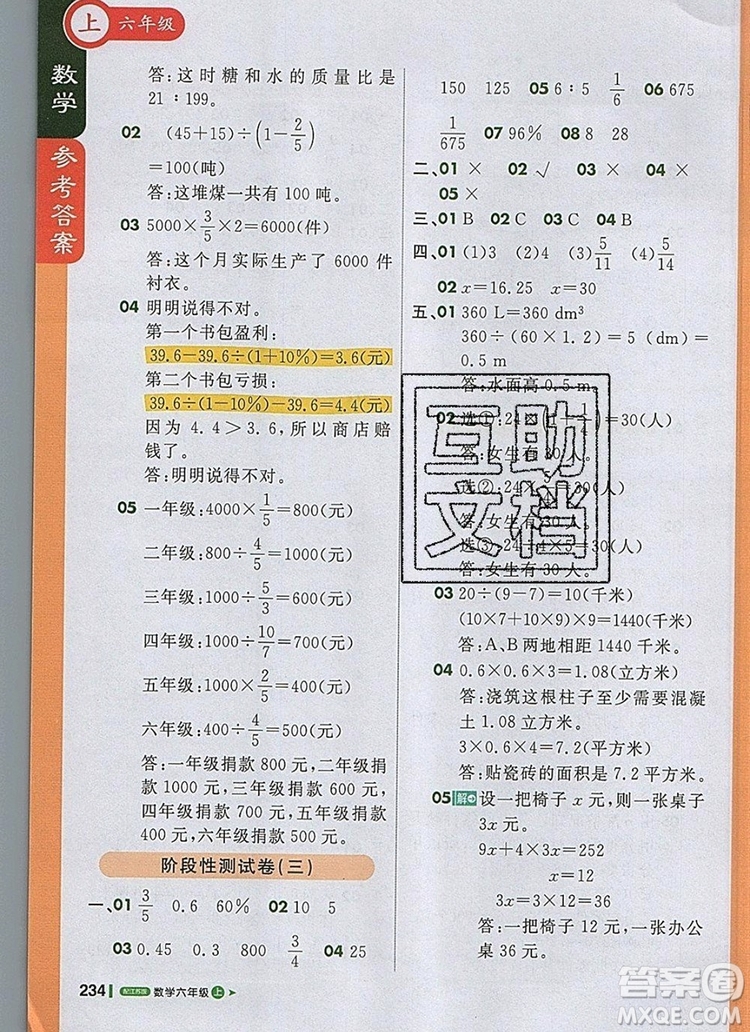 上 六年级
数学
参考答案
答:这时糖和水的质量比是
21∶199。
02 (45+15)÷(1-2/5)
=100(吨)
答:这堆煤一共有 100 吨。
03 5000×3/5×2=6000(件)
答:这个月实际生产了 6000 件
衬衣。
04 明明说得不对。
第一个书包盈利:
39.6-39.6÷(1+10%)=3.6(元)
第二个书包亏损:
39.6÷(1-10%)-39.6=4.4(元)
因为 4.4>3.6,所以商店赔
钱了。
答:明明说得不对。
05 一年级:4000×1/5=800(元)
二年级:800÷4/5=1000(元)
三年级:1000÷5/3=600(元)
四年级:1000÷10/7=700(元)
五年级:1000×2/5=400(元)
六年级:400÷4/5=500(元)
答:一年级捐款 800 元,二年级捐款
1000 元,三年级捐款 600 元,
四年级捐款 700 元,五年级捐款
400 元,六年级捐款 500 元。
阶段性测试卷(三)
一、01 3/5 0.6 60% 02 10 5
03 0.45 0.3 800 3/4 04 25
234 配江苏版 数学六年级 上
150 125 05 6∶5 1/6 06 675
1/675 07 96% 08 8 28
二、01 × 02 √ 03 × 04 ×
05 ×
三、01 B 02 C 03 C 04 B
四、01 (1)3 (2)4 (3)5/11 (4)5/14
02 x=16.25 x=10
五、01 360 L=360 dm³
360÷(60×12)=
0.5 m
答:水面高 0.5 m。
02 选①:24÷(1-)=30(人)
答:女生有 30 人。
选②:24×5=30(人)
答:女生有 30 人。
选③:24÷4×5=30(人)
答:女生有 30 人。
03 20÷(9-7)=10(千米)
(10×7+10×9)×9=1440(千米)
答:A、B 两地相距 1440 千米。
04 0.6×0.6×3=1.08(立方米)
答:浇筑这根柱子至少需要混凝
土 1.08 立方米。
3×0.6×4=7.2(平方米)
答:贴瓷砖的面积是 7.2 平方米。
05 解 设一把椅子 x 元,则一张桌子
3x 元。
9x+4×3x=252
x=12
3x=3×12=36
答:一把椅子 12 元,一张办公
桌 36 元。
互助
文档
答案圈
MXQE.COM